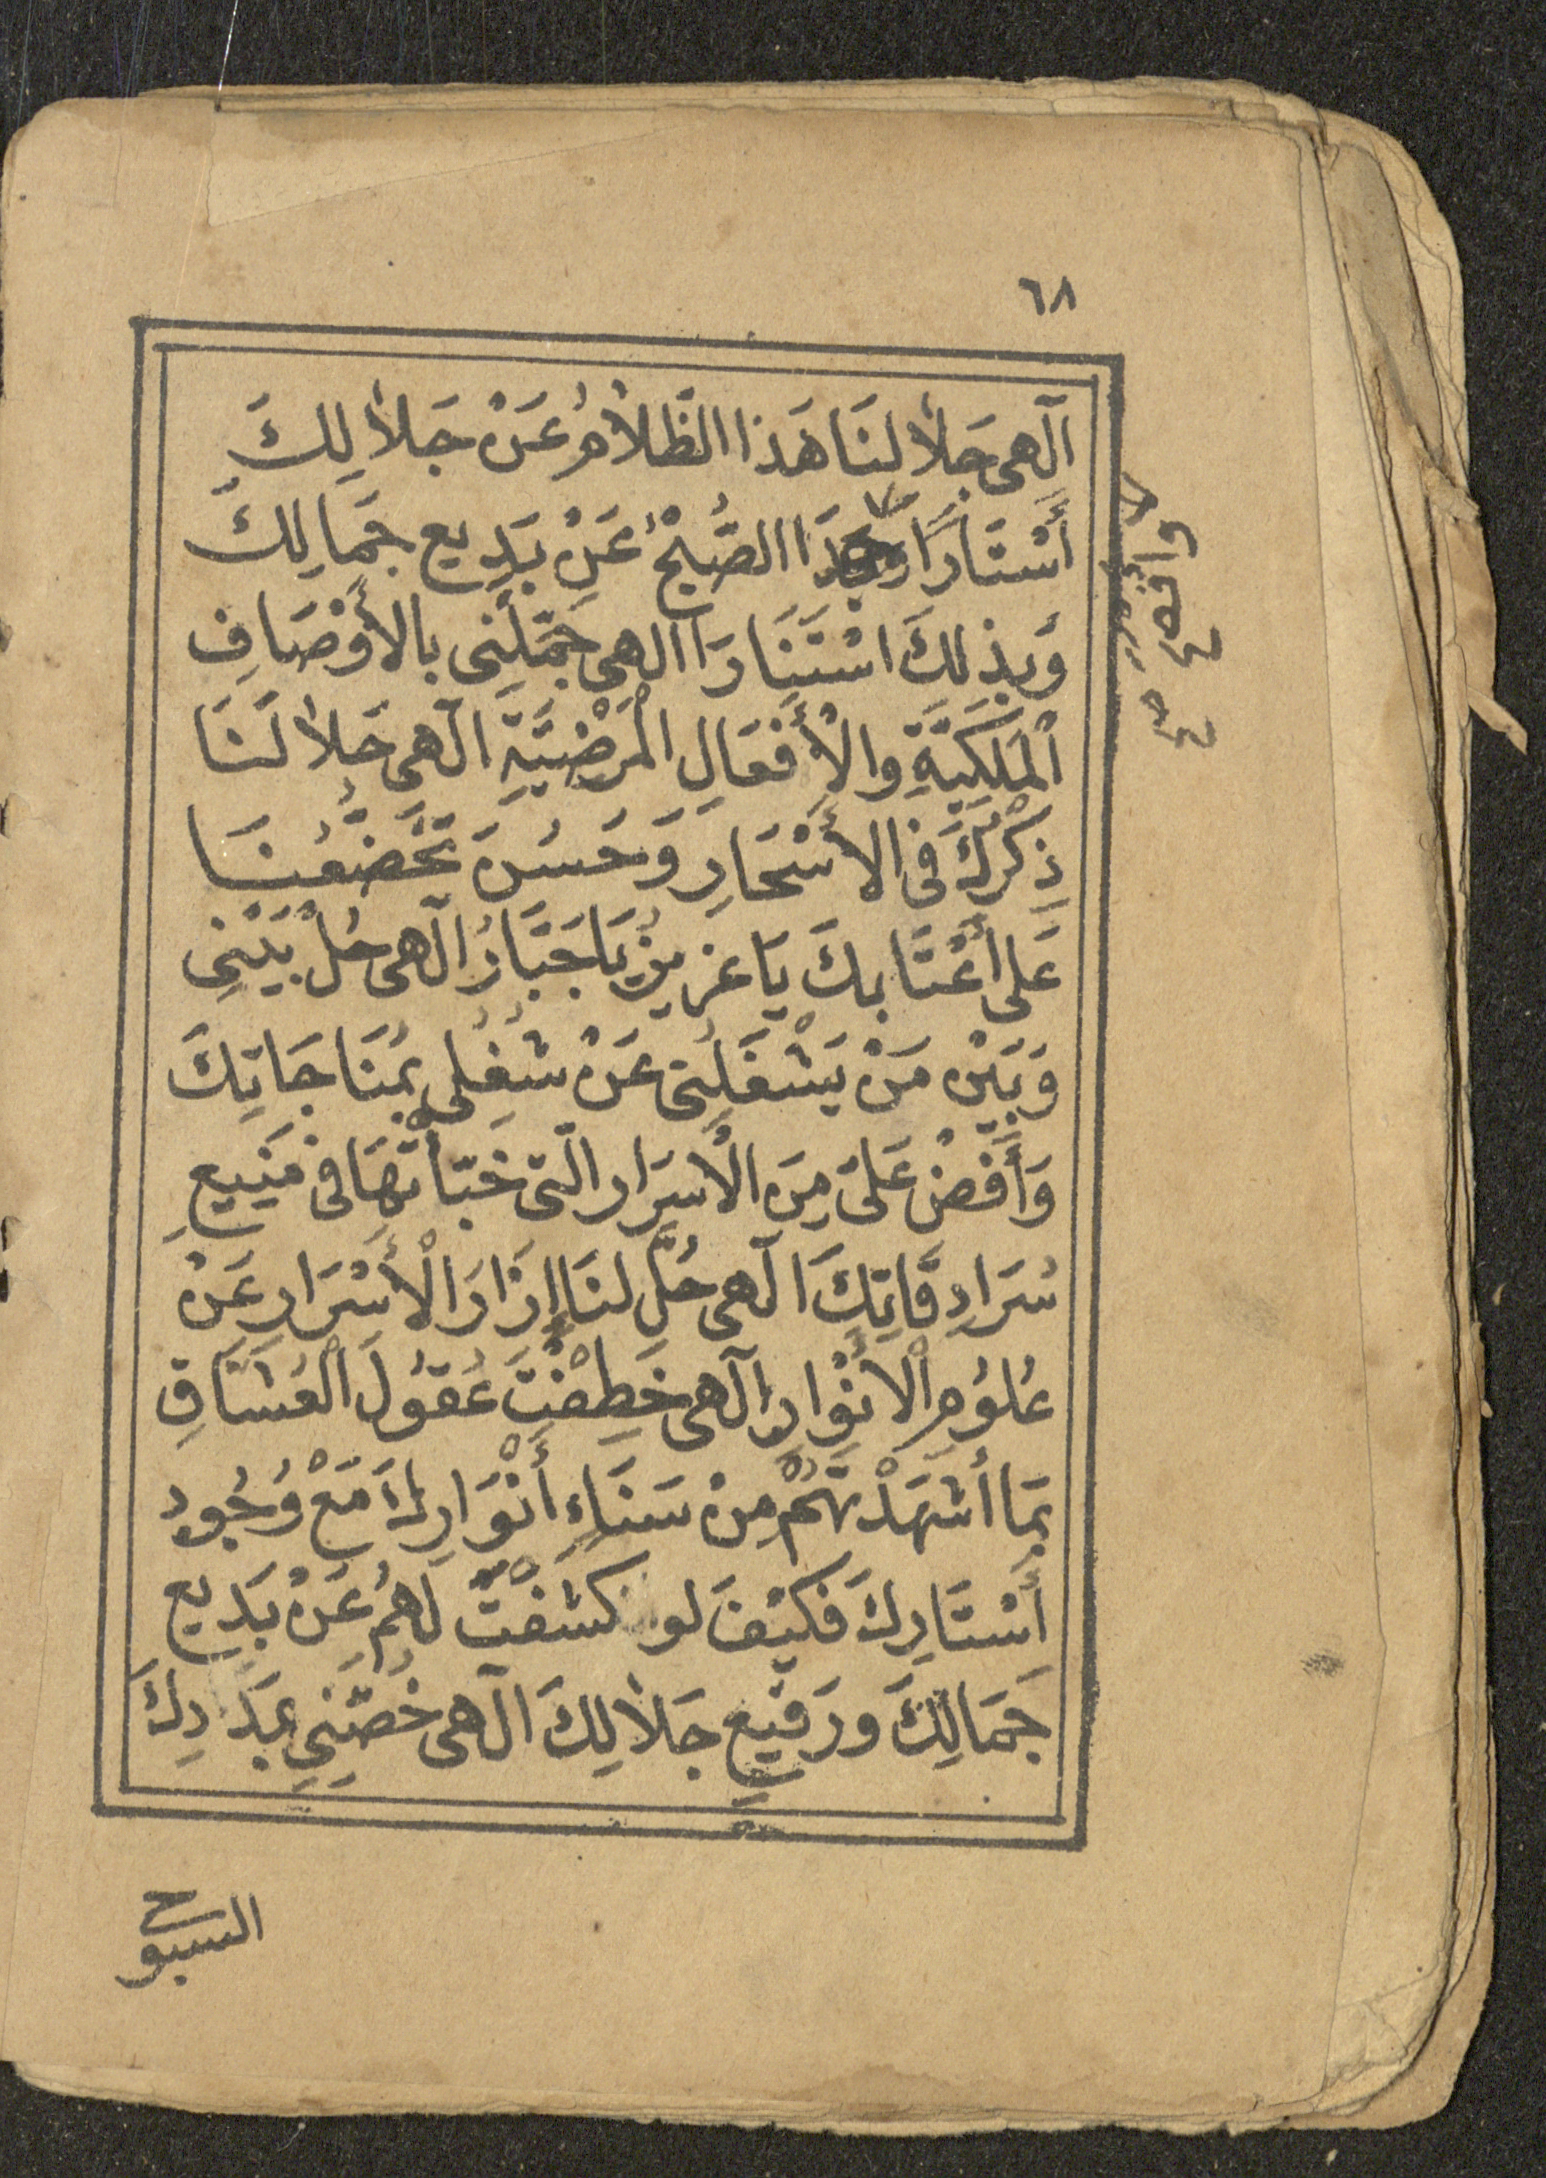 ٦٨
آلهى جَلاٰ لنَا هَذا الظَّلاٰمُ عَنْ جَلاٰلِكَ
أَسْتَارًا الصُّبْحُ عَنْ بَدِيعِ جَمَالِكَ
وَبِذلِكَ اسْتَنَارَا الهى جَمّلْنى بالأَوْصَافِ
الْمَلَكِيَّةِ والْأَفعَالِ الْمَرْضِيَّةِ آلهى حَلاٰ لَنَا
ذِكْرُكَ فى الأَسْحَارِ وَحَسُنَ تَخَضُّعُنَا
عَلى أعْتَابِكَ يَا عزيزُ يَا جَبَّارُ آلهى حُلْ بَيْنِى
وَبَيْنَ مَنْ يَشْغَلُنى عَنْ شُغُلى بمُنَاجَاتِكَ
وَأَفِضْ عَلىَّ مِنَ الْاسَرَار الّتى خَبّأتهَا فى مَنِيعِ
سُرَادِقَاتِكَ آلهى حُلَّ لنَا إِزَارَ الْأَسْرَارِ عَنْ
عُلوُمِ الْأَنْوَارِ آلهى خَطِفْتَ عُقوُلَ الْعُشَّاقِ
بمَا أَشهَدْتَهُمْ مِنْ سَنَاءِ أَنْوَارِكَ مَعْ وُجُودِ
أَسْتَارِكَ فَكيْفَ لو كَشَفْتَ لَهُمْ عَنْ بَدِيعِ
جَمَالِكَ ورَفيعِ جَلاٰلِكَ آلهى خُصَّنِى بمَدَدِكَ
السبوح